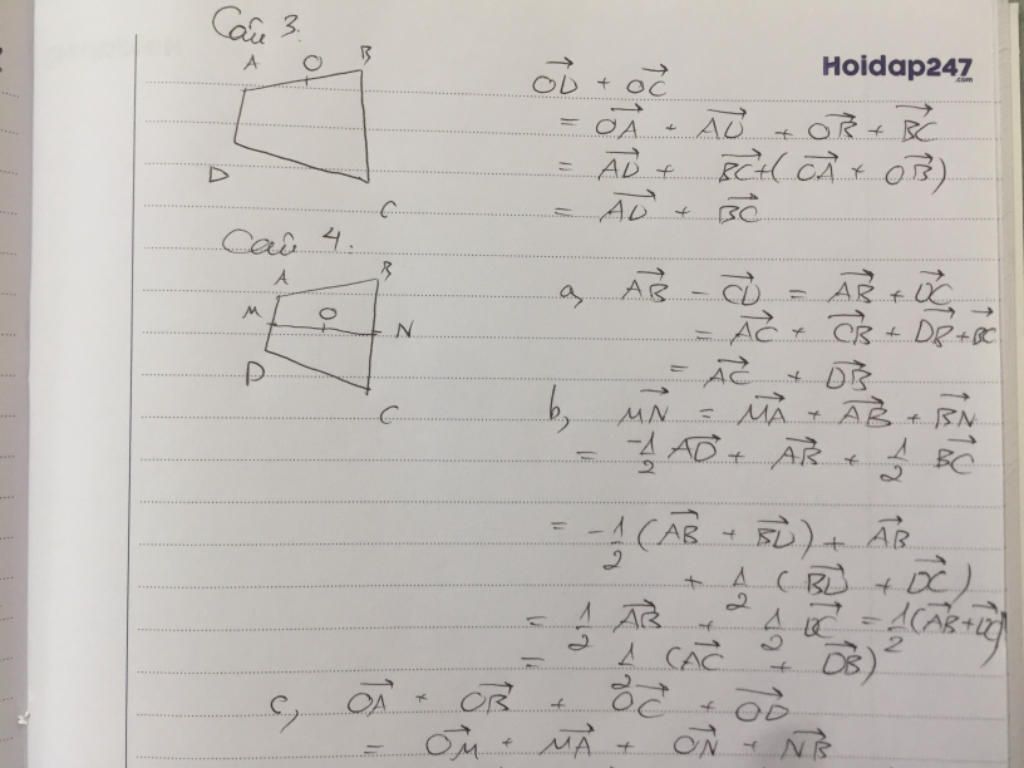 Câu 3.
A O B
D
C
Hoidap247
.com
→OD + →OC
= →OA + →AD + →OB + →BC
= →AD + →BC + (→OA + →OB)
= →AD + →BC
Câu 4.
A B
M O N
D
C
a, →AB - →CD = →AB + →DC
= →AC + →CB + →DB + →BC
= →AC + →DB
b, →MN = →MA + →AB + →BN
= -1/2 →AD + →AB + 1/2 →BC
= -1/2 (→AB + →BD) + →AB
+ 1/2 (→BD + →DC)
= 1/2 →AB + 1/2 →DC = 1/2 (→AB + →DC)
= 1/2 (→AC + →DB)
c, →OA + →OB + →OC + →OD
= →OM + →MA + →ON + →NB